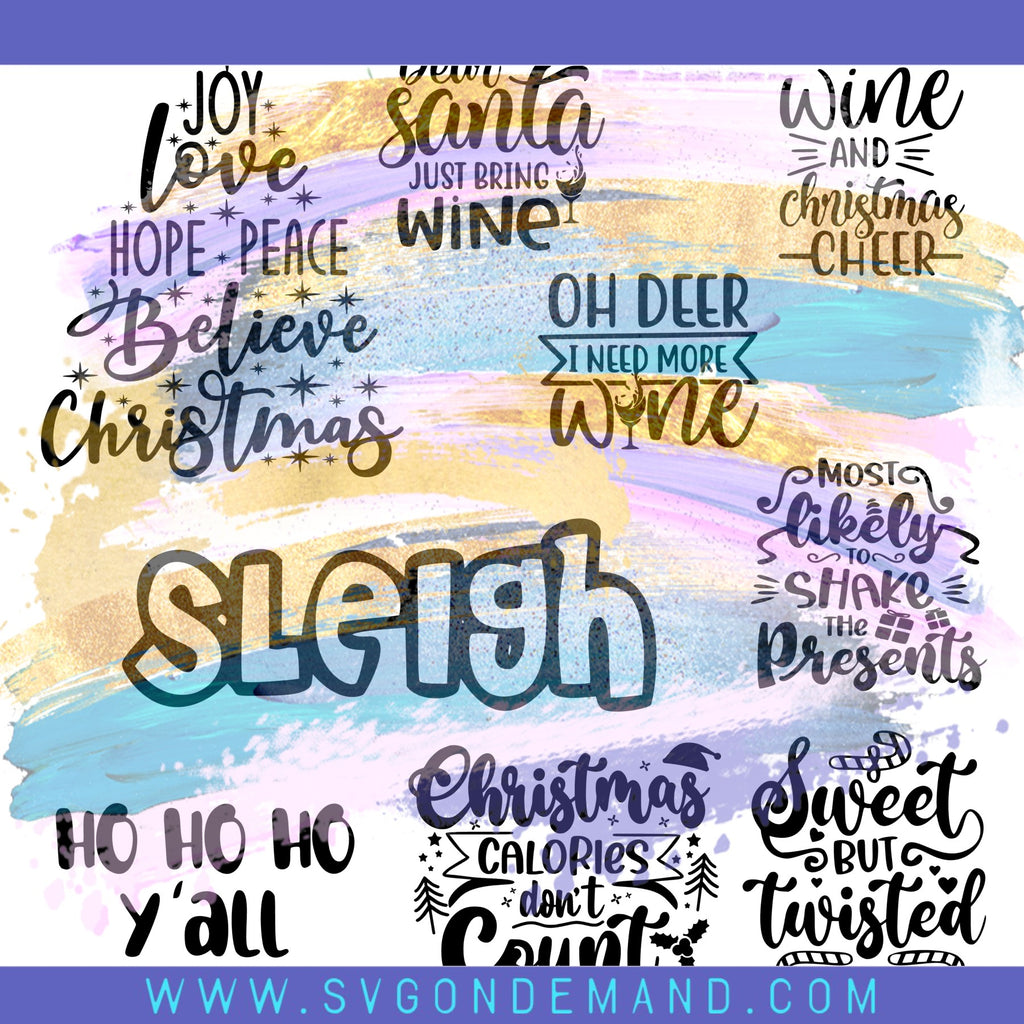 JOY
love
HOPE PEACE
Believe
Christmas
Dear
santa
JUST BRING
WINE
wine
AND
christmas
CHEER
OH DEER
I NEED MORE
wine
MOST
likely
TO
SHAKE
THE
Presents
SLeigh
HO HO HO
y'all
Christmas
CALORIES
don't
Count
Sweet
BUT
twisted
WWW.SVGONDEMAND.COM